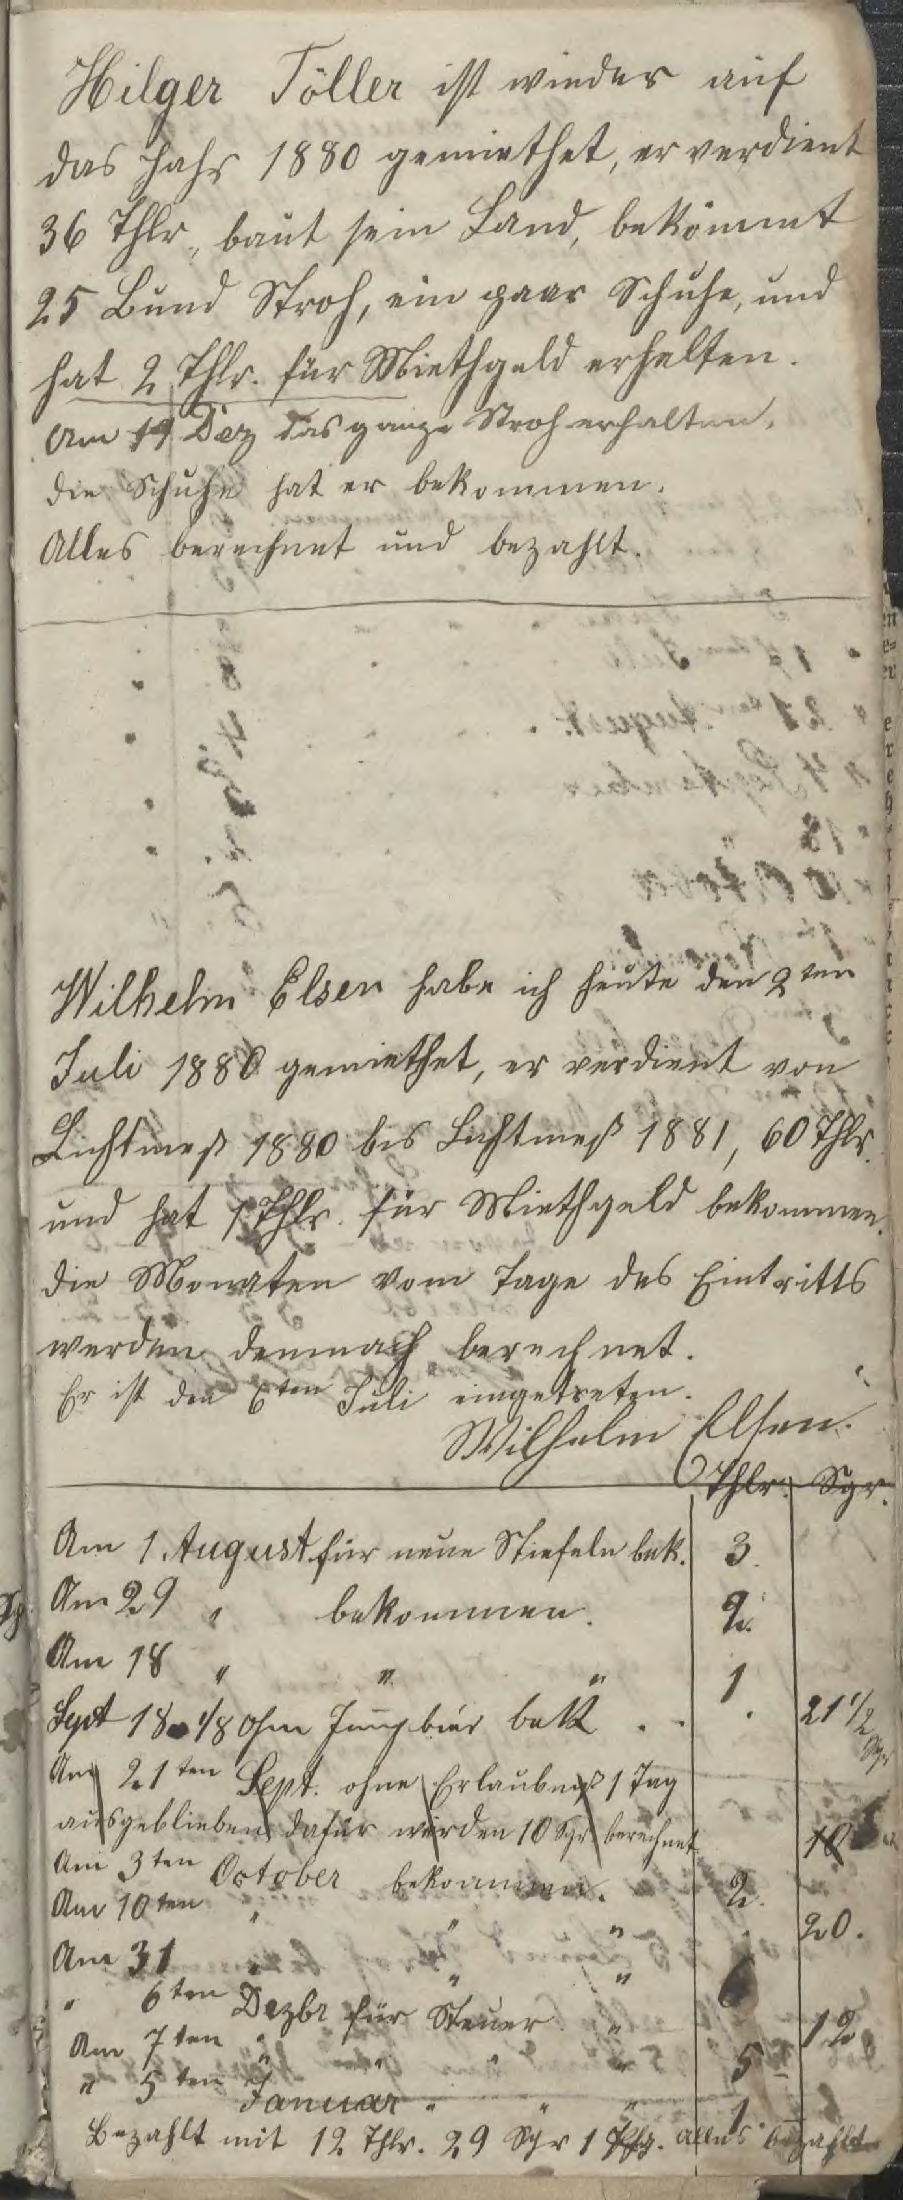 Hilger Töller ist wieder auf
das Jahr 1880 gemiethet, er verdient
36 Thlr., baut sein Land, bekömmt
25 Bund Stroh, ein paar Schuhe, und
hat 2 Thlr. für Miethgeld erhalten.
Am 19 Dez das ganze Stroh erhalten,
die Schuhe hat er bekommen.
Alles berechnet und bezahlt.
Wilhelm Elsen habe ich heute den 2ten
Juli 1880 gemiethet, er verdient von
Lichtmeß 1880 bis Lichtmeß 1881, 60 Thlr.
und hat 1 Thlr. für Miethgeld bekommen.
die Monaten vom Tage des Eintritts
werden demnach berechnet.
Er ist den 6ten Juli eingetreten.
Wilhelm Elsen.
Thlr. Sgr.
Am 1. August für neue Stiefeln bek. 3.
Am 29 " bekommen. 2.
Am 18 " " " 1
Sept 18. 1/8 Ohm Jungbier bek . . . 21 1/2 Sgr
Am 21ten Sept. ohne Erlaubniß 1 Tag
ausgeblieben dafür werden 10 Sgr berechnet 10
Am 3ten October bekommen. 2.
Am 10ten " " " . 20.
Am 31 " " "
" 6ten Dezbr für Steuer " 12
Am 7ten " " " " 5
" 5ten Januar " " " 1
Bezahlt mit 12 Thlr. 29 Sgr 1 Pfg. alles bezahlt